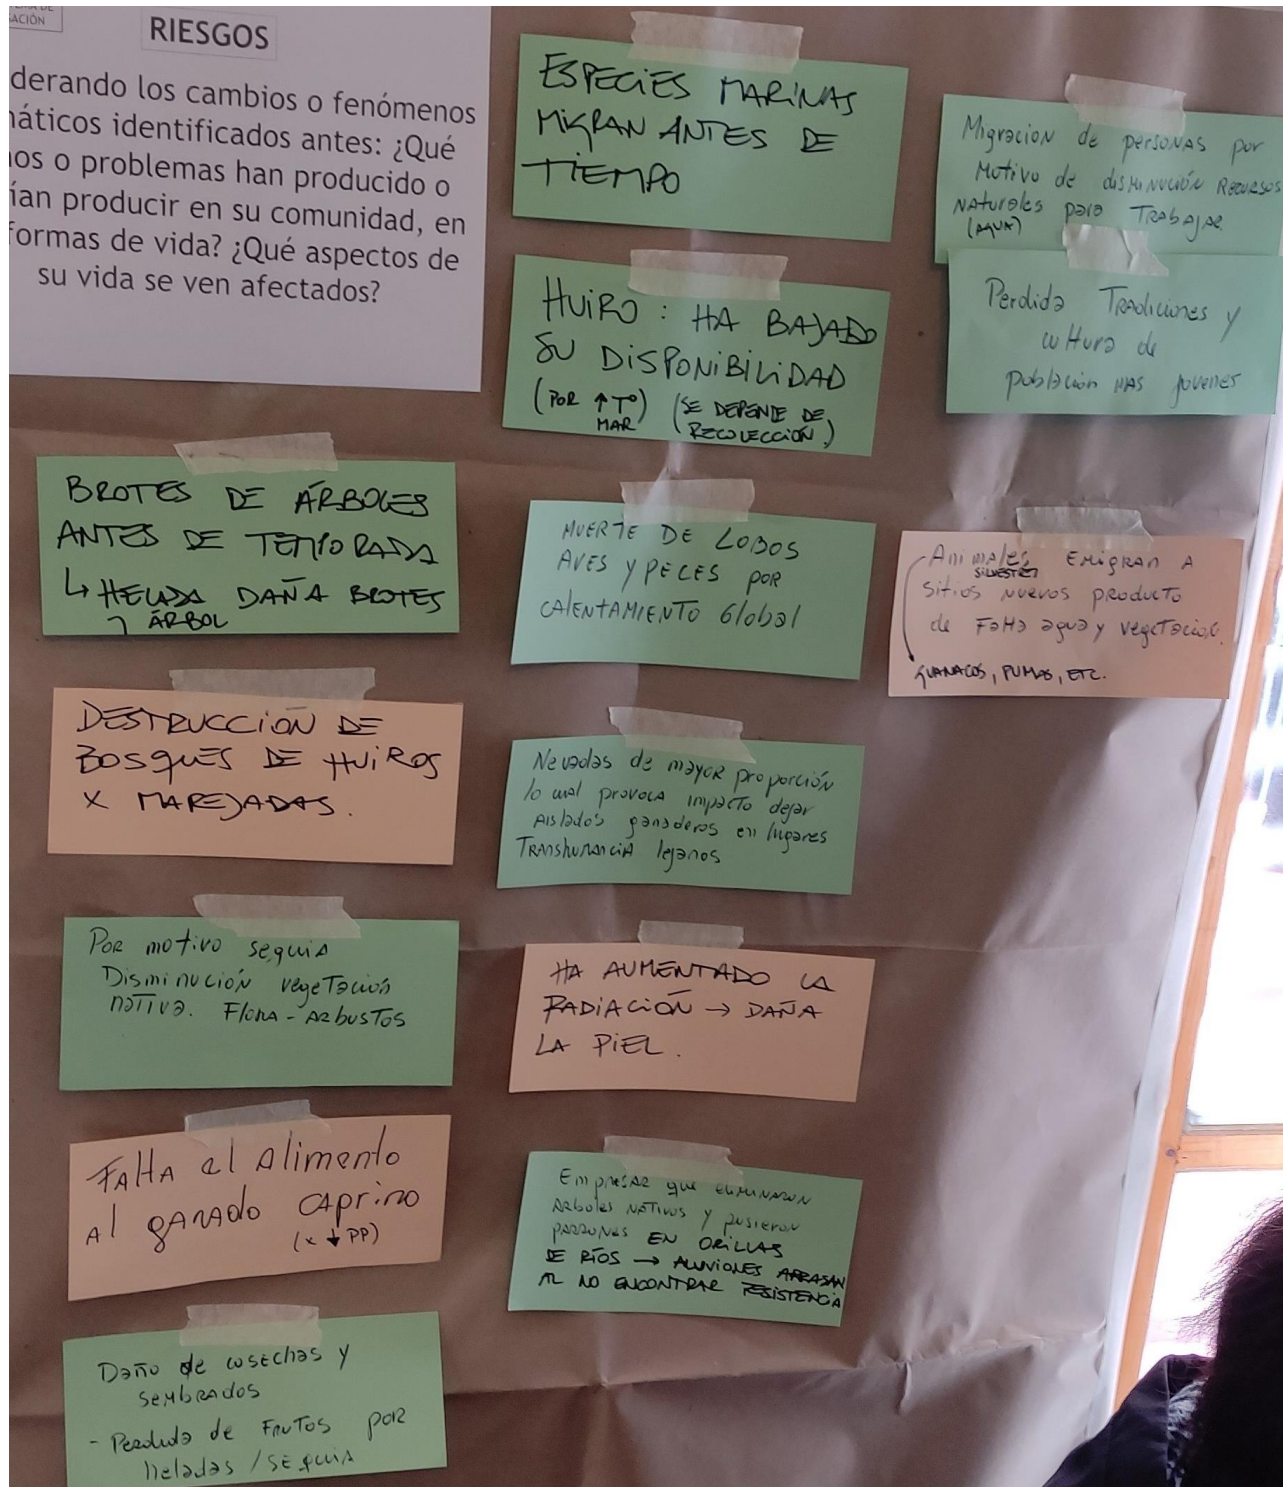 ACIÓN
RIESGOS
derando los cambios o fenómenos
náticos identificados antes: ¿Qué
nos o problemas han producido o
ían producir en su comunidad, en
formas de vida? ¿Qué aspectos de
su vida se ven afectados?
BROTES DE ÁRBOLES
ANTES DE TEMPORADA
↳ HELADA DAÑA BROTES
ÁRBOL
DESTRUCCIÓN DE
BOSQUES DE HUIROS
X MAREJADAS.
Por motivo sequia
Disminución vegetación
nativa. Flora - Arbustos
Falta el Alimento
Al ganado caprino
(x ↓ PP)
Daño de cosechas y
sembrados
- Perdida de Frutos por
heladas / sequia
ESPECIES MARINAS
MIGRAN ANTES DE
TIEMPO
HUIRO : HA BAJADO
SU DISPONIBILIDAD
(POR ↑ T° MAR) (SE DEPENDE DE RECOLECCIÓN)
MUERTE DE LOBOS
AVES Y PECES POR
CALENTAMIENTO Global
Nevadas de mayor proporción
lo cual provoca impacto dejar
Aislados ganaderos en lugares
Transhumancia lejanos
HA AUMENTADO LA
RADIACIÓN → DAÑA
LA PIEL.
Empresas que eliminaron
Arboles nativos y pusieron
parrones EN ORILLAS
DE RÍOS → ALUVIONES ARRASAN
AL NO ENCONTRAR RESISTENCIA
Migracion de personas por
Motivo de disminución Recursos
Naturales para Trabajar
(AGUA)
Perdida Tradiciones y
cultura de
población mas jovenes
Animales silvestres Emigran A
sitios nuevos producto
de Falta agua y vegetacion.
GUANACOS, PUMAS, ETC.